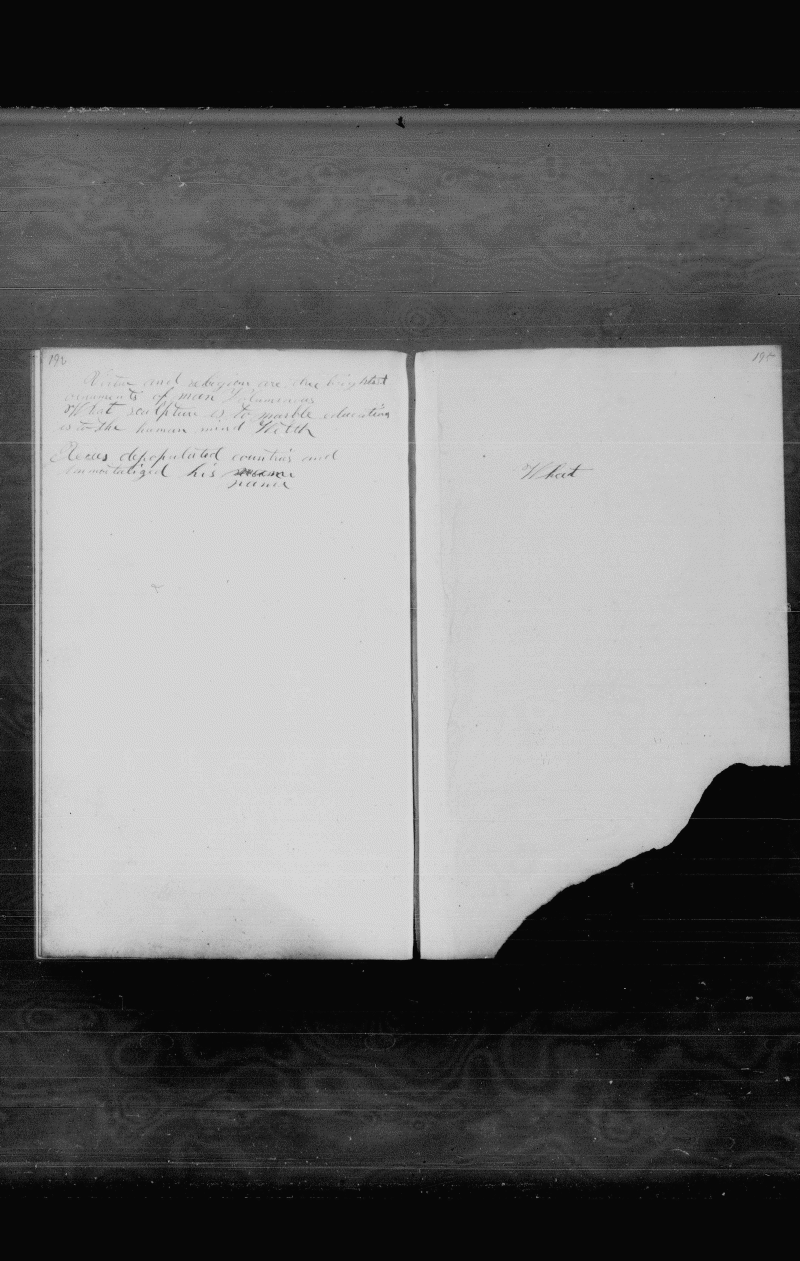 192
Virtue and religion are the highest
ornaments of man Volumenous
What sculpture is to marble education
is to the human mind With
depopulated countris and
immortalized his name
name
195
What